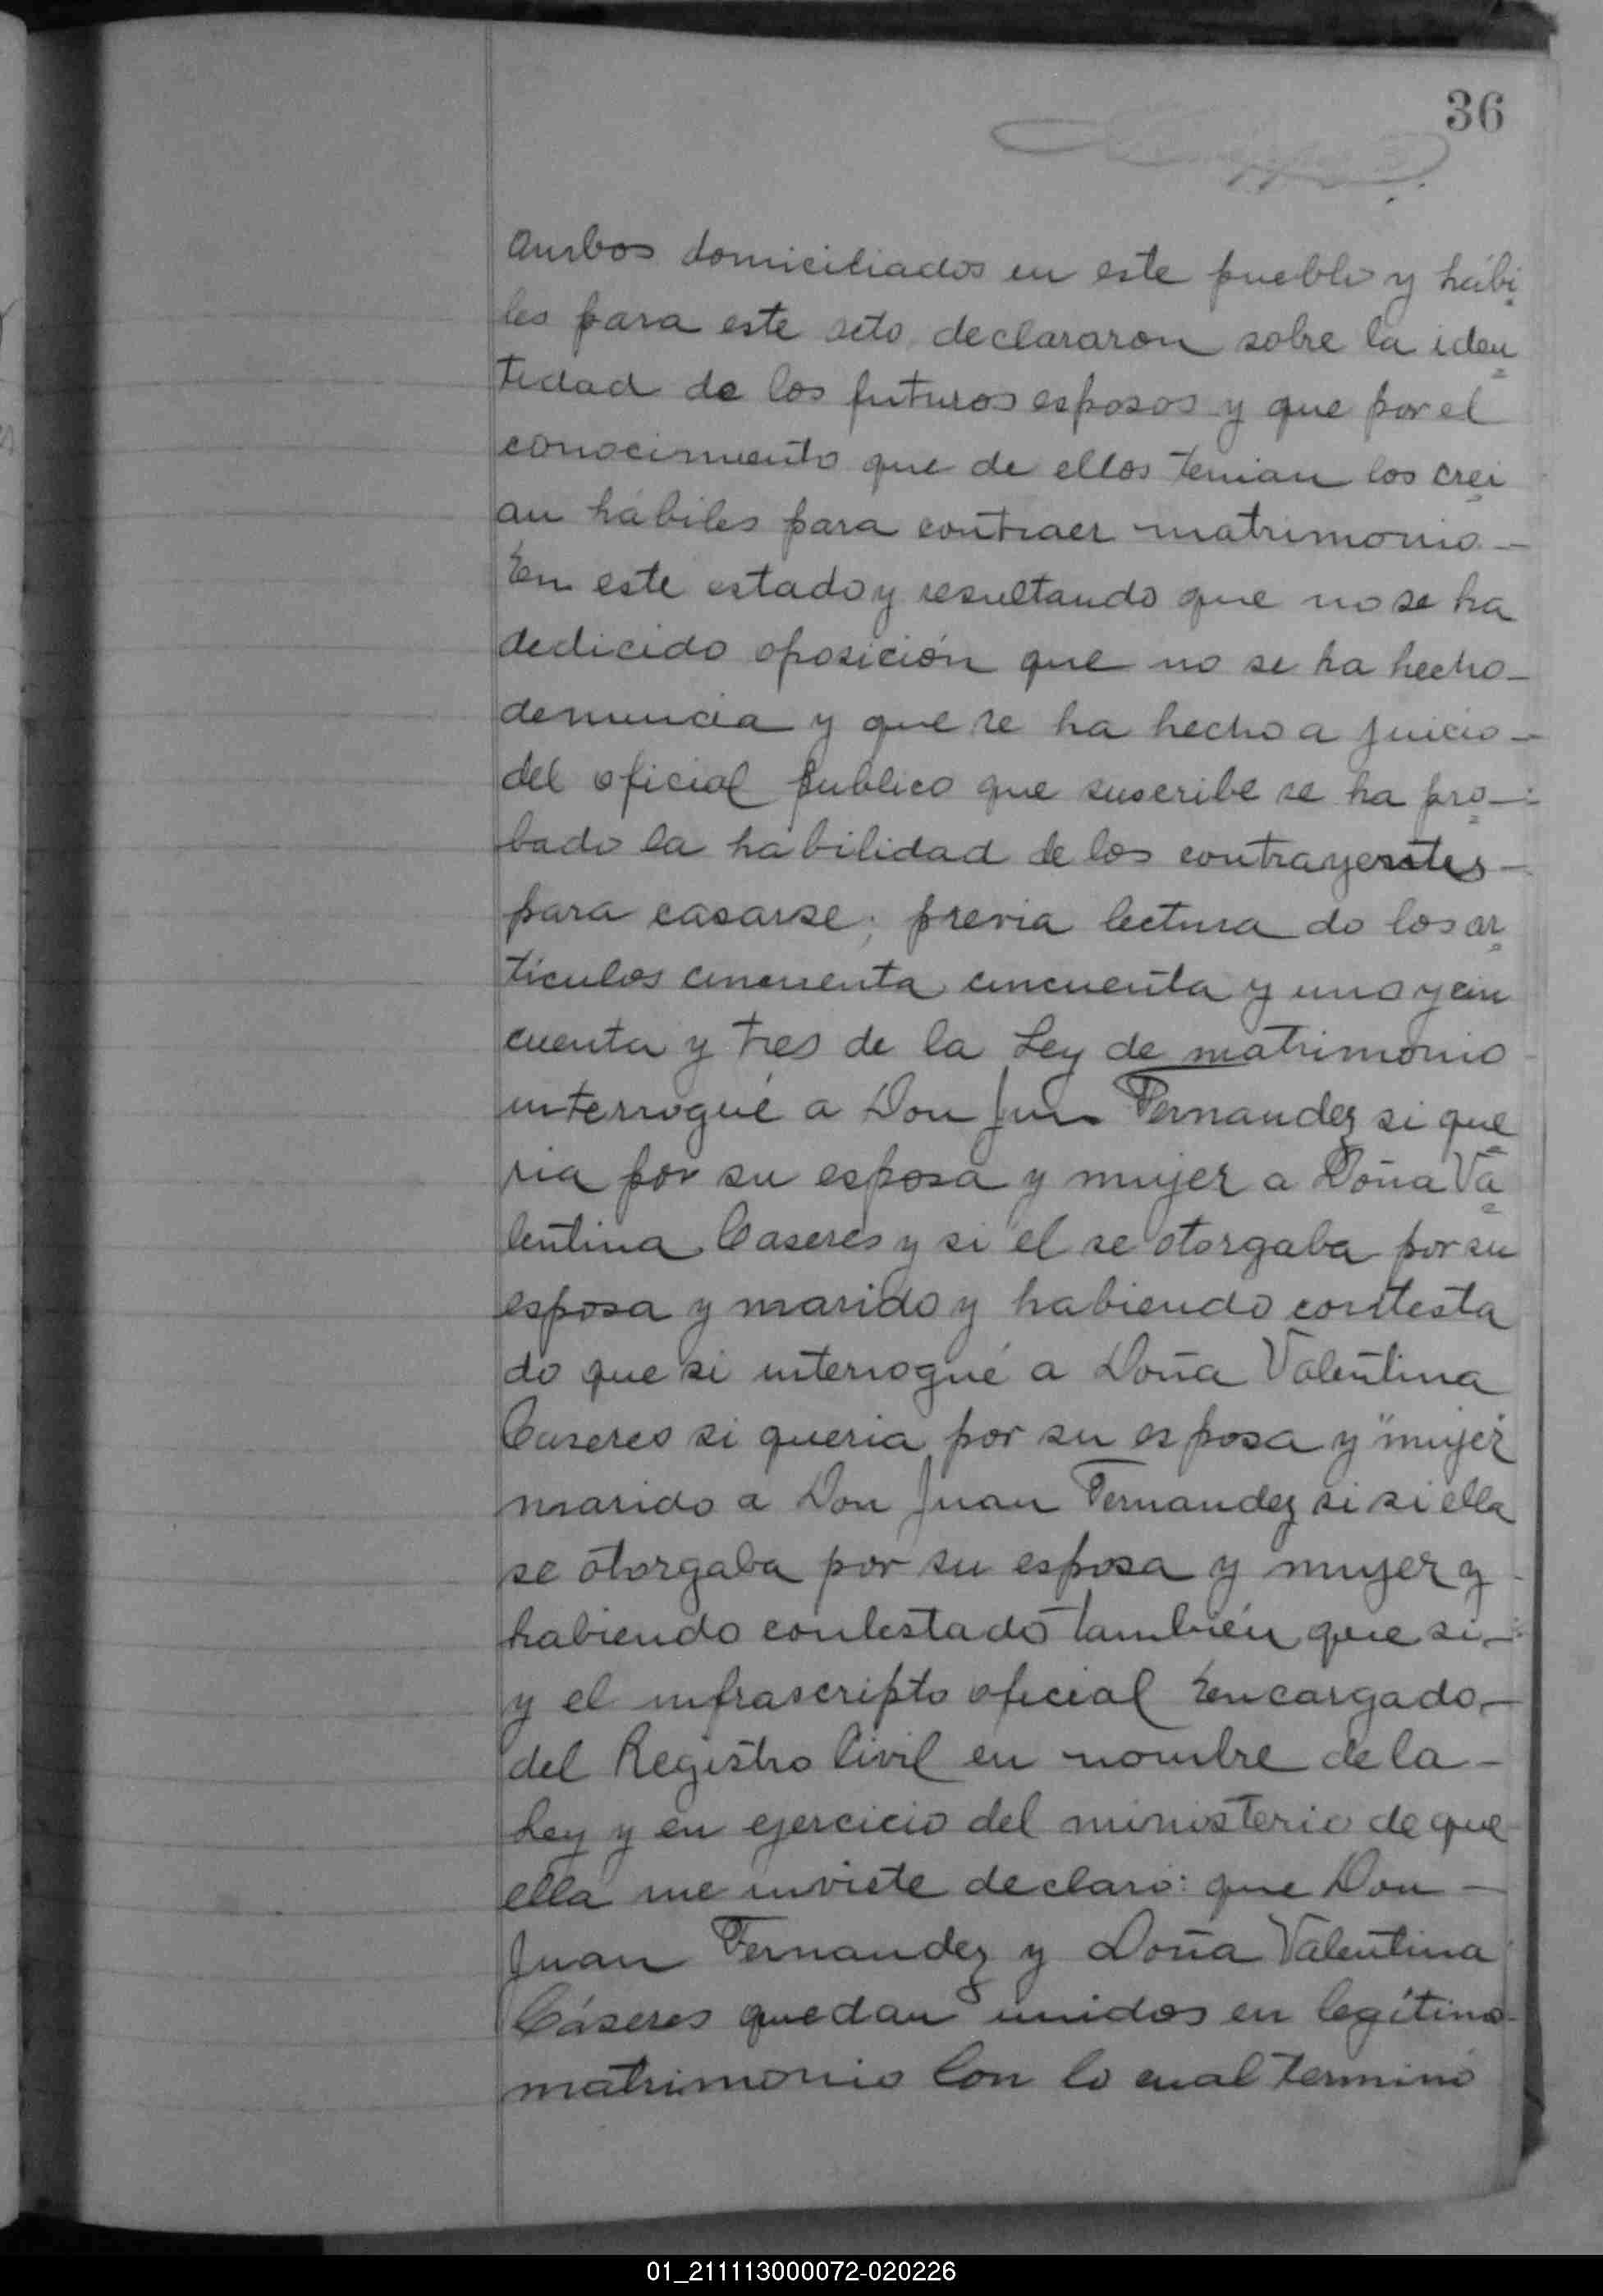 36
Ambos domiciliados en este pueblo y hábi
les para este acto declararon sobre la iden
tidad de los futuros esposos y que por el
conocimiento que de ellos tenian los crei
an hábiles para contraer matrimonio.—
En este estado y resultando que no se ha
dedicido oposición que no se ha hecho—
denuncia y que se ha hecho a juicio—
del oficial publico que suscribe se ha pro—
bado la habilidad de los contrayentes—
para casarse; previa lectura do los ar
ticulos cincuenta cincuenta y uno y cin
cuenta y tres de la Ley de matrimonio
interrogué a Don Juan Fernandez si que
ria por su esposa y mujer a Doña Va
lentina Caseres y si el se otorgaba por su
esposa y marido y habiendo contesta
do que si interrogué a Doña Valentina
Caseres si queria por su esposa y "mujer"
marido a Don Juan Fernandez si si ella
se otorgaba por su esposa y mujer y
habiendo contestado también que si—
y el infrascripto oficial Encargado—
del Registro Civil en nombre de la—
Ley y en ejercicio del ministerio de que
ella me inviste declaro: que Don—
Juan Fernandez y Doña Valentina
Cáseres quedan unidos en legítimo
matrimonio Con lo cual terminó
01_211113000072-020226